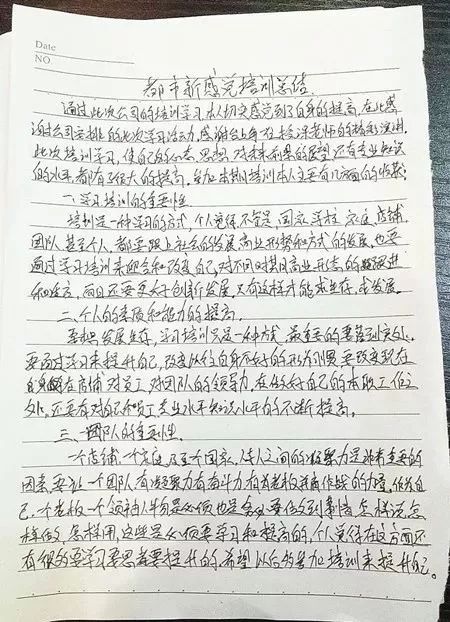 Date
NO
都市新感觉培训总结
通过此次公司的培训学习本人切实感觉到了自身的提高,在此感
谢公司安排的此次学习活动,感谢台上老师的精彩演讲.
此次培训学习,使自己的心态,思想,对未来前景的展望还有专业知识
的水平都有了很大的提高,参加本期培训本人主要有几方面的收获:
一.学习培训的重要性
培训是一种学习的方式,个人觉得不管是,国家,学校,家庭,店铺,
团队甚至个人,都要跟上社会的发展,商业形势和方式的发展,也要
通过学习培训来迎合和改变自己,对不同时期商业形态的进
和,而且还要更好创新发展,只有这样才能求生存,求发展.
二.个人的素质和能力的提高.
要想发展生存,学习培训只是一种方式,最重要的要落到实处,
要通过学习来提升自己,改变以往自身不好的行为习惯,要改变现在
在店铺对员工,对团队的领导力,在做好自己的本职工作之
外,还要有对自己和员工专业水平知识水平的不断提高.
三.团队的重要性.
一个店铺,一个家庭,乃至一个国家,人与人之间的凝聚力是非常重要的
因素,要让一个团队有凝聚力有奋斗力有为老板并肩作战的力量,作为自
己,一个老板一个领袖人物是必须也是要做到事情怎样说怎
样做,怎样用,这些是必须要学习和提高的,个人觉得在这方面还
有很多要学习要思考要提升的,希望以后多参加培训来提升自己。